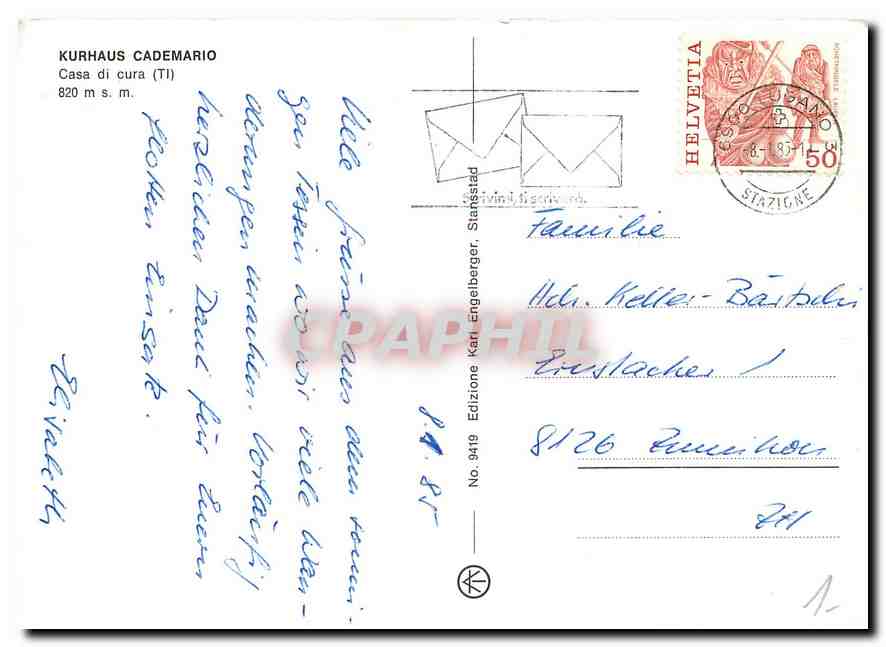 KURHAUS CADEMARIO
Casa di cura (TI)
820 m s. m.
Viele Grüsse aus dem sonni-
gen Tessin wo wir viele Wan-
derungen machen. Vorläufig
herzlichen Dank für Euern
flotten Einsatz.
Elisabeth
8.1.85
No. 9419 Edizione Karl Engelberger, Stansstad
scrivimi, ti scriverò.
HELVETIA
50
LUGANO 3
-8.-1.85-1
STAZIONE
Familie
Hch. Keller-Bärtschi
8126 Zumikon
ZH
CPAPHIL
1.-